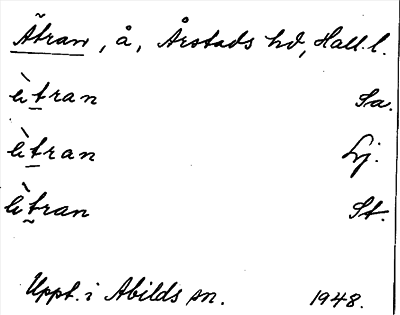 Ätran, å, Årstads hd, Hall. l.
ὲtran Sa.
ὲtran Lj.
ὲtran St.
Uppt. i Abilds sn. 1948.